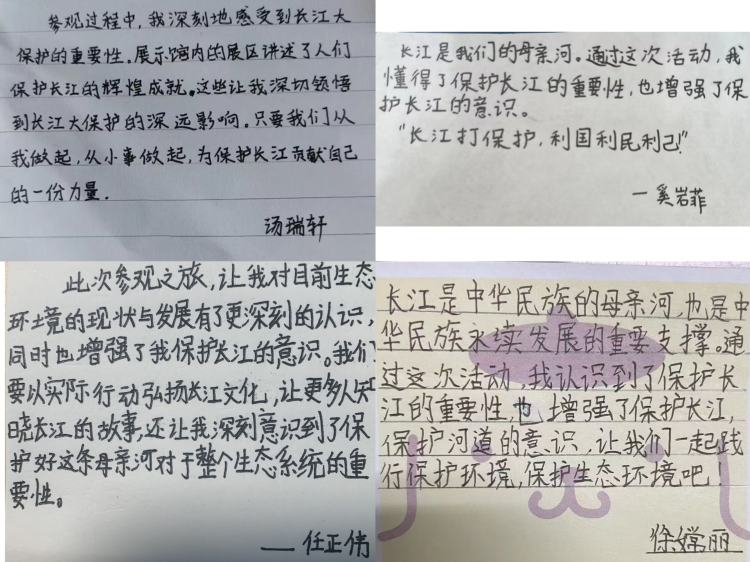 参观过程中,我深刻地感受到长江大
保护的重要性。展示馆内的展区讲述了人们
保护长江的辉煌成就。这些让我深切领悟
到长江大保护的深远影响。只要我们从
我做起,从小事做起,为保护长江贡献自己
的一份力量.
汤瑞轩
长江是我们的母亲河。通过这次活动,我
懂得了保护长江的重要性,也增强了保
护长江的意识。
“长江打保护,利国利民利己!”
—奚岩菲
此次参观之旅,让我对目前生态
环境的现状与发展有了更深刻的认识,
同时也增强了我保护长江的意识。我们
要以实际行动弘扬长江文化,让更多人知
晓长江的故事,还让我深刻意识到了保
护好这条母亲河对于整个生态系统的重
要性。
——任正伟
长江是中华民族的母亲河,也是中
华民族永续发展的重要支撑。通
过这次活动,我认识到了保护长
江的重要性,也增强了保护长江,
保护河道的意识,让我们一起践
行保护环境,保护生态环境吧!
徐嫦丽